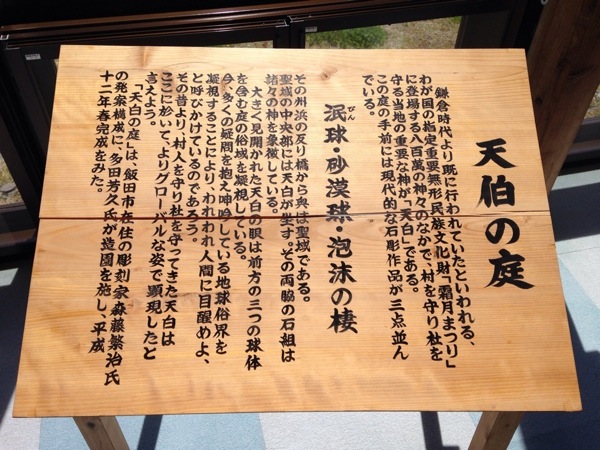 天伯の庭
鎌倉時代より既に行われていたといわれる、
わが国の指定重要無形民族文化財「霜月まつり」
に登場する八百萬の神々のなかで、村を守り社を
守る当地の重要な神が「天白」である。
この庭の手前には現代的な石彫作品が三点並ん
でいる。
泯球・砂漠球・泡沫の棲
びん
その州浜の反り橋から奥は聖域である。
聖域の中央部には天白が坐す。その両脇の石組は
諸々の神を象徴している。
大きく見開かれた天白の眼は前方の三つの球体
を含む庭の俗域を凝視している。
今、多くの疑問を抱え呻吟している地球俗界を
凝視することにより、われわれ人間に目醒めよ、
と呼びかけているのであろう。
その昔より、村人を守り社を守ってきた天白は
ここに於いて、よりグローバルな姿で顕現したと
言えよう。
「天白の庭」は、飯田市在住の彫刻家森藤繁治氏
の発案構成に、多田芳久氏が造園を施し、平成
十二年春完成をみた。